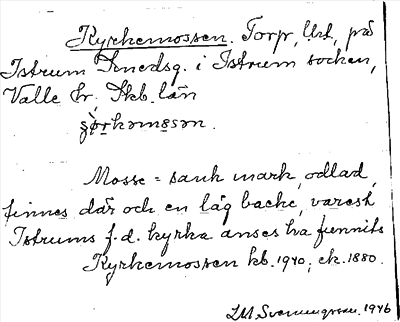 Kyrkemossen. Torp, Urt, på
Istrum Smedsg. i Istrum socken,
Valle hr, Skb. län
Mosse = sank mark, odlad,
finnes där och en låg backe, varest
Istrums f.d. kyrka anses ha funnits
Kyrkemossen kb. 1940; ek. 1880.
1946